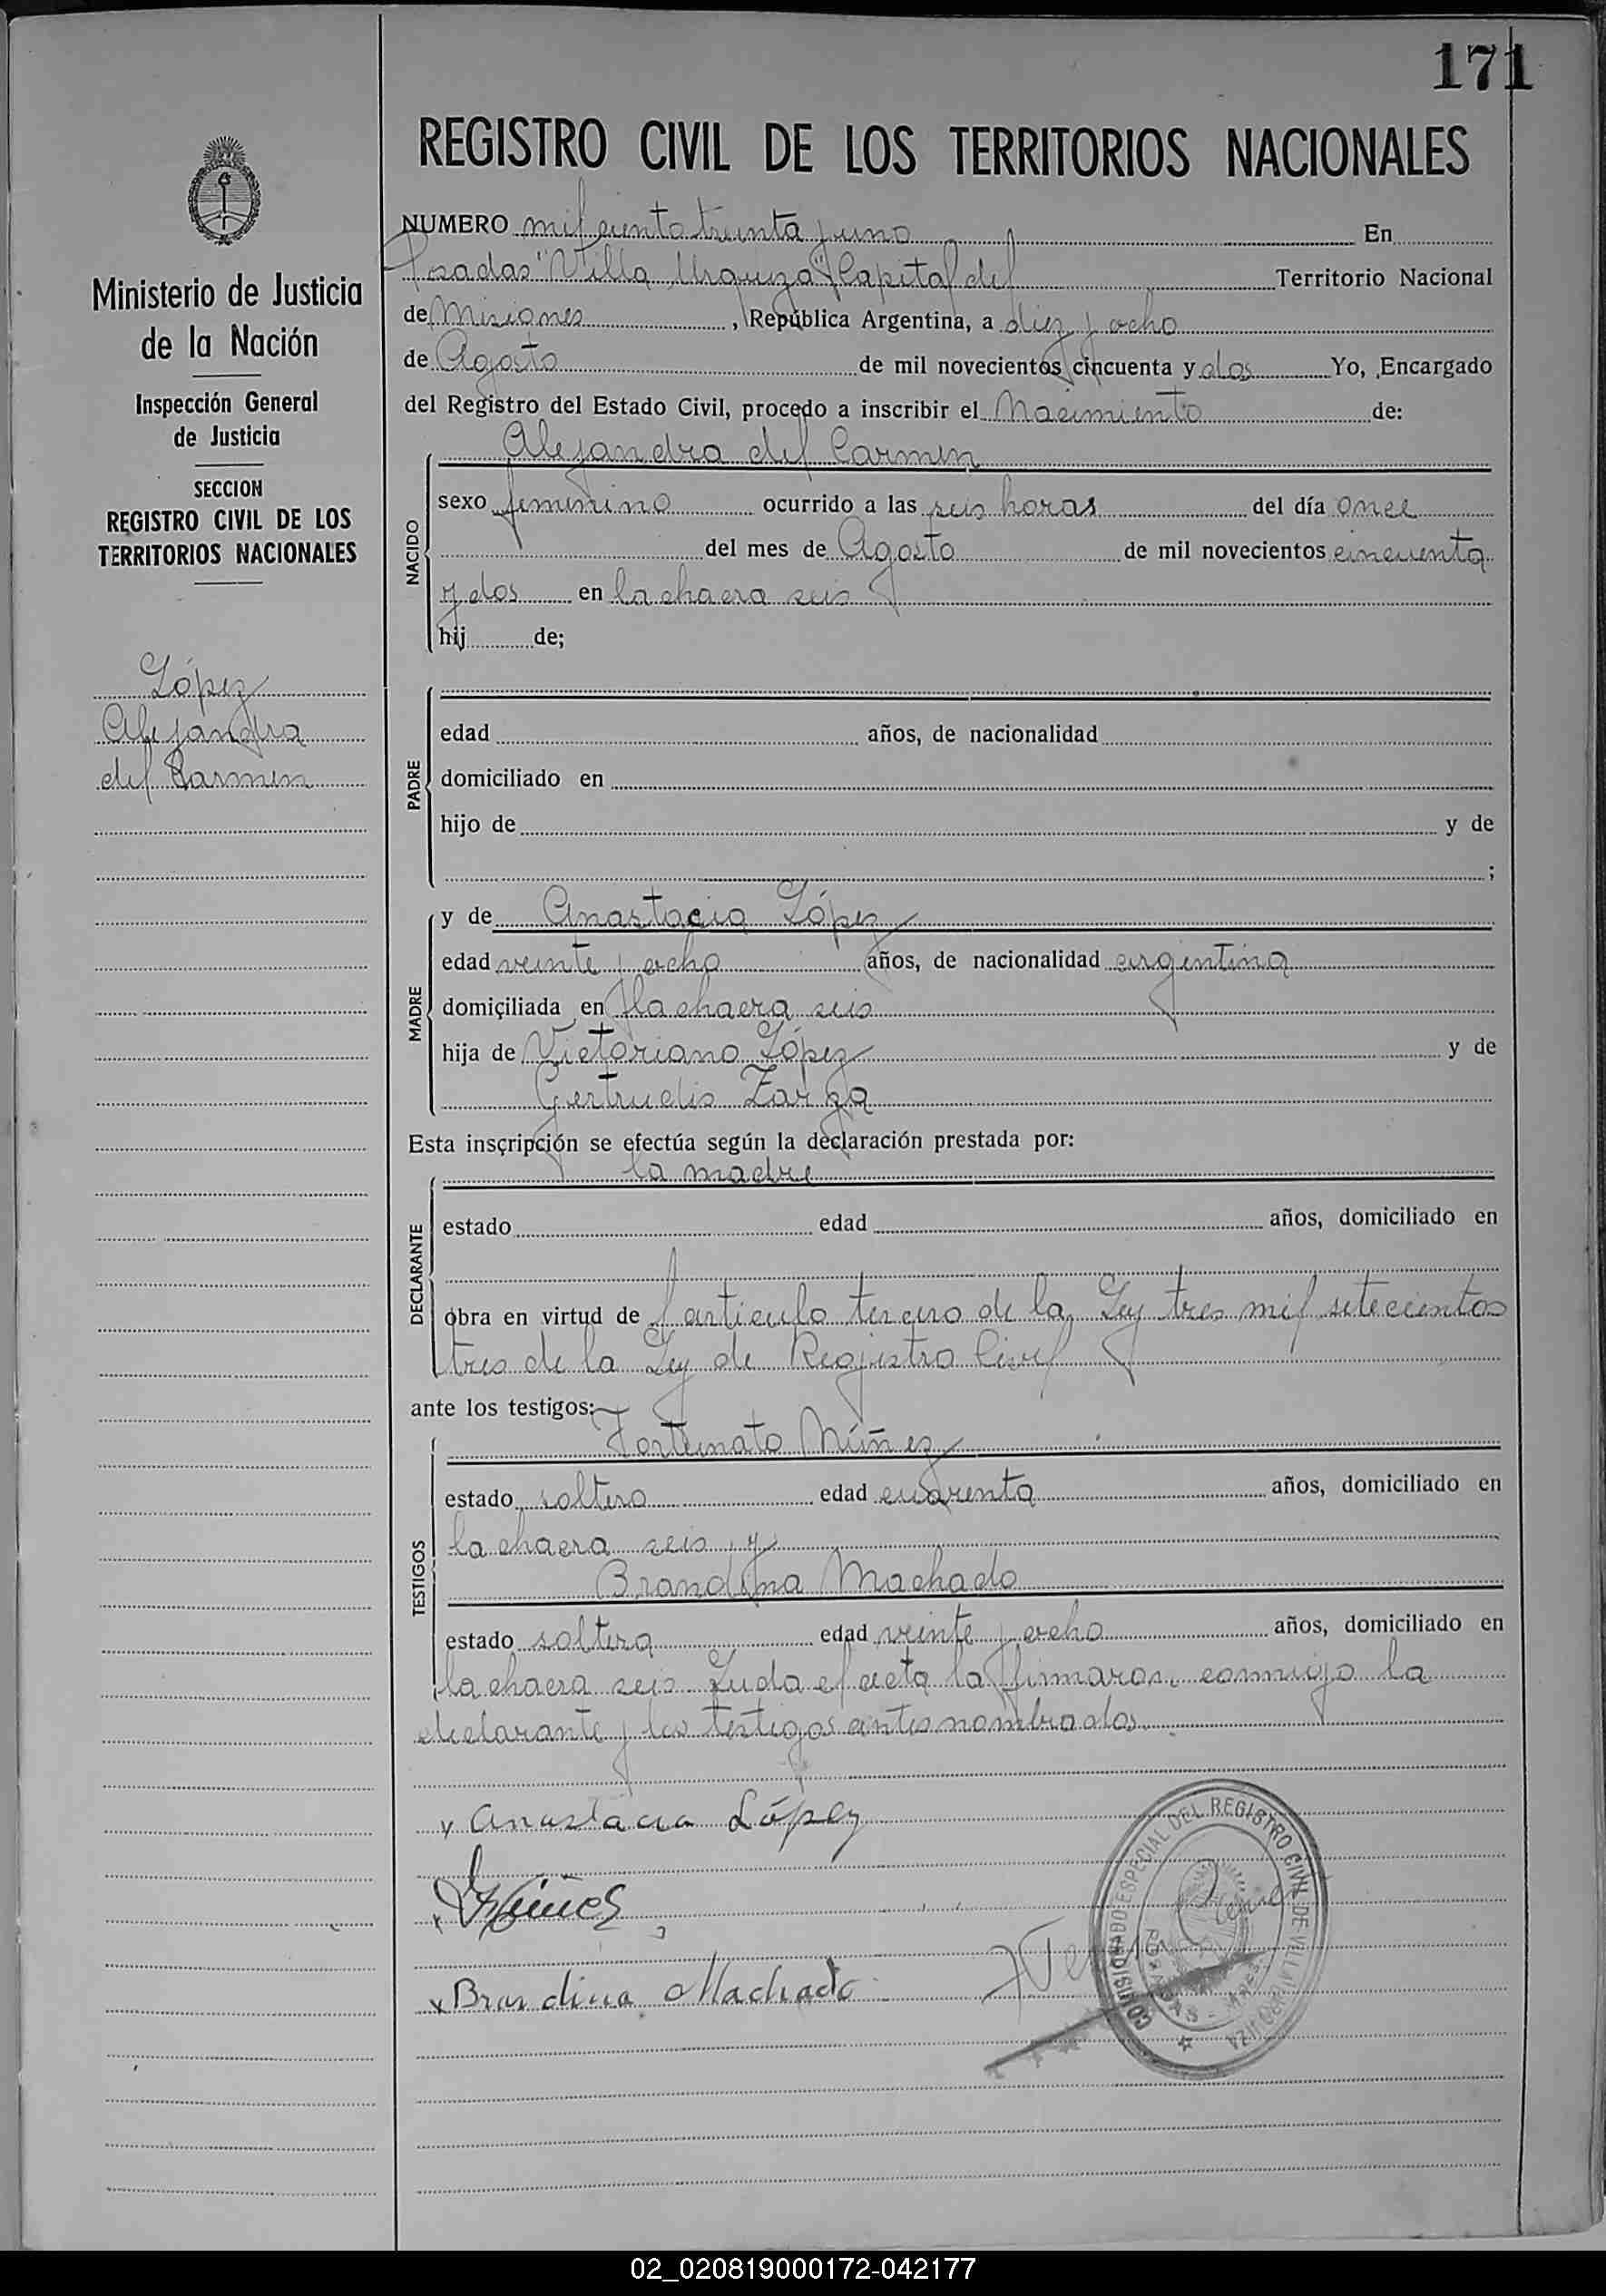 171
REGISTRO CIVIL DE LOS TERRITORIOS NACIONALES
NUMERO mil ciento treinta y uno En
Posadas "Villa Urquiza" Capital del Territorio Nacional
de Misiones , República Argentina, a diez y ocho
de Agosto de mil novecientos cincuenta y dos Yo, Encargado
del Registro del Estado Civil, procedo a inscribir el Nacimiento de:
Alejandra del Carmen
NACIDO
sexo femenino ocurrido a las seis horas del día once
del mes de Agosto de mil novecientos cincuenta
y dos en la chacra seis
hij de;
PADRE
edad años, de nacionalidad
domiciliado en
hijo de y de
;
MADRE
y de Anastacia López
edad veinte y ocho años, de nacionalidad argentina
domiciliada en la chacra seis
hija de Victoriano López y de
Gertrudis Zarza
Esta inscripción se efectúa según la declaración prestada por:
la madre
DECLARANTE
estado edad años, domiciliado en
obra en virtud de l articulo tercero de la Ley tres mil setecientos
tres de la Ley de Registro Civil
ante los testigos:
Fortunato Núñez
TESTIGOS
estado soltero edad cuarenta años, domiciliado en
la chacra seis y
Brandina Machado
estado soltera edad veinte y ocho años, domiciliado en
la chacra seis Leida el acta la firmaron conmigo la
declarante y los testigos antes nombrados.
x Anastacia López
Núñes
x Brandina Machado
COMISIONADO ESPECIAL DEL REGISTRO CIVIL DE VILLA URQUIZA
Ministerio de Justicia
de la Nación
Inspección General
de Justicia
SECCION
REGISTRO CIVIL DE LOS
TERRITORIOS NACIONALES
López
Alejandra
del Carmen
02_020819000172-042177